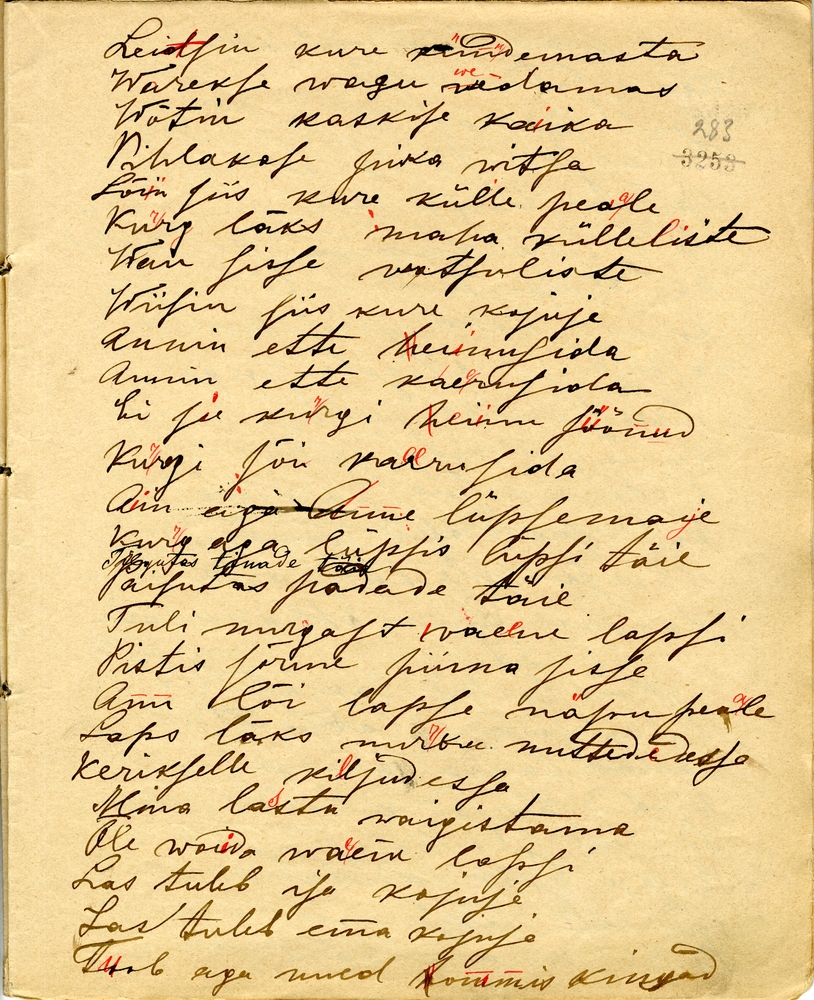 Leidsin kure kündemasta
Warekse wagu wedamas
Wõtin kaskise kaika
Pihlakase piska witsa
Lõin siis kure külle peale
Kurg läks maha külleliste
Wan sisse
Wiisin siis kure kojuje
Annin ette heinusida
Annin ette kaerusida
Ei sie kurgi heinu söönud
Kurgi sõi kaerusida
Ain aga Anne lüpsemaie
283
3253
Kurg aga lüpsis lüpsi täie
Tilgutas tõnade täie
Paisutas padade täie
Tuli nurgast waene lapsi
Pistis sõrme piima sisse
Ann lõi lapse näpu peale
Laps läks nurka nuttedessa
Keriksele kiljudessa
Mina lasta waigistama
Ole waida waene lapsi
Las tuleb isa kojuje
Las tuleb ema kojuje
Tuob aga uued kommis kingad